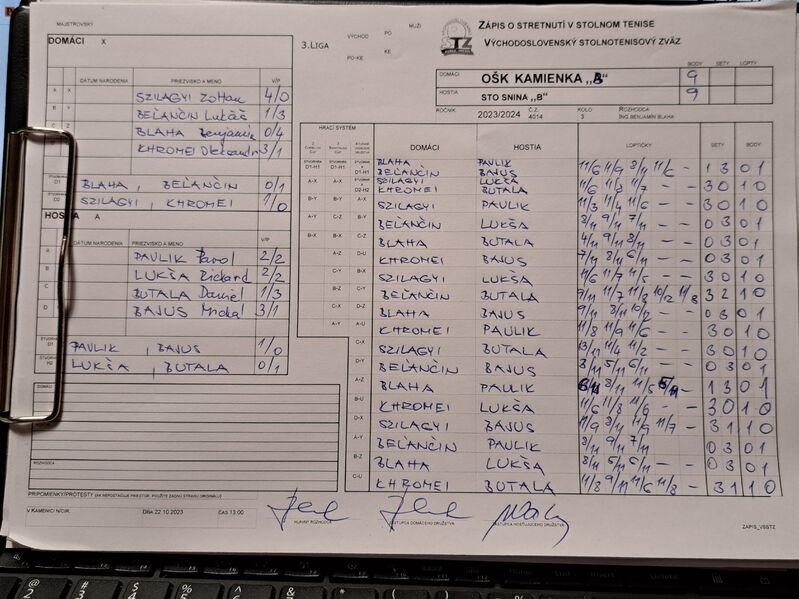 MAJSTROVSKÝ
DOMÁCI X
3.LIGA
VÝCHOD
PO
MUŽI
PO-KE
KE
ZÁPIS O STRETNUTÍ V STOLNOM TENISE
VÝCHODOSLOVENSKÝ STOLNOTENISOVÝ ZVÄZ
BODY SETY LOPTY
DOMÁCI OŠK KAMIENKA „B“ 9
HOSTIA STO SNINA „B“ 9
ROČNÍK 2023/2024 Č.Z. 4014 KOLO 3 ROZHODCA ING.BENJAMÍN BLAHA
DÁTUM NARODENIA PRIEZVISKO A MENO V/P
SZILAGYI Zoltan 4/0
BEĽANČIN Lukáš 1/3
BLAHA Benjamin 0/4
KHROMEI Oleksandr 3/1
D1 BLAHA, BEĽANČIN 0/1
D2 SZILAGYI, KHROMEI 1/0
HOSTIA A
DÁTUM NARODENIA PRIEZVISKO A MENO V/P
PAVLIK Pavol 2/2
LUKŠA Rickard 2/2
BUTALA Daniel 1/3
BAJUS Michal 3/1
PAVLIK, BAJUS 1/0
LUKŠA, BUTALA 0/1
DOMÁCI
ROZHODCA
HRACÍ SYSTÉM DOMÁCI HOSTIA LOPTIČKY SETY BODY
BLAHA PAVLIK
BEĽANČIN BAJUS 11/6 11/9 8/11 11/6 - 1 3 0 1
SZILAGYI LUKŠA
KHROMEI BUTALA 11/6 11/8 11/7 - - 3 0 1 0
SZILAGYI PAVLIK 11/3 11/4 11/6 - - 3 0 1 0
BEĽANČIN LUKŠA 8/11 9/11 7/11 - - 0 3 0 1
BLAHA BUTALA 4/11 9/11 8/11 - - 0 3 0 1
KHROMEI BAJUS 7/11 8/11 6/11 - - 0 3 0 1
SZILAGYI LUKŠA 11/6 11/7 11/5 - - 3 0 1 0
BEĽANČIN BUTALA 9/11 11/7 11/8 10/12 11/8 3 2 1 0
BLAHA BAJUS 9/11 8/11 10/12 - - 0 3 0 1
KHROMEI PAVLIK 11/8 11/9 11/6 - - 3 0 1 0
SZILAGYI BUTALA 13/11 11/4 11/2 - - 3 0 1 0
BEĽANČIN BAJUS 8/11 5/11 6/11 - - 0 3 0 1
BLAHA PAVLIK 8/11 11/5 5/11 - 1 3 0 1
KHROMEI LUKŠA 11/6 11/8 11/6 - - 3 0 1 0
SZILAGYI BAJUS 11/9 8/11 11/9 11/7 - 3 1 1 0
BEĽANČIN PAVLIK 8/11 9/11 7/11 0 3 0 1
BLAHA LUKŠA 8/11 5/11 6/11 - - 0 3 0 1
KHROMEI BUTALA 11/8 9/11 11/6 11/8 - 3 1 1 0
PRIPOMIENKY/PROTESTY (AK NEPOSTAČUJE PRIESTOR, POUŽITE ZADNÚ STRANU ORIGINÁLU)
V KAMIENKE DŇA 22.10.2023 ČAS 13:00
HLAVNÝ ROZHODCA
ZÁSTUPCA DOMÁCEHO DRUŽSTVA
ZÁSTUPCA HOSŤUJÚCEHO DRUŽSTVA
ZAPIS_VSSTZ